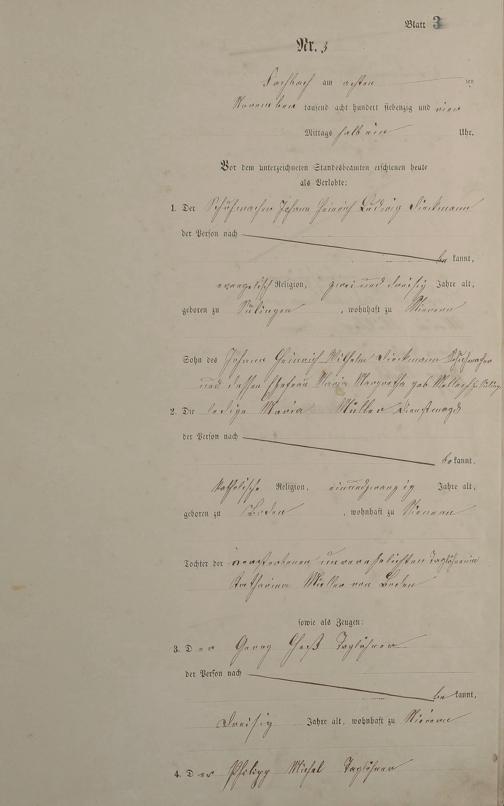 Blatt 3
Nr. 3
Fachbach am achten ten
November tausend acht hundert siebenzig und vier
Mittags halb ein Uhr.
Vor dem unterzeichneten Standesbeamten erschienen heute
als Verlobte:
1. Der Schuhmacher Johann Heinrich Ludwig Dieckmann
der Person nach
be kannt,
evangelisch Religion, zwei und dreisig Jahre alt,
geboren zu Sulingen, wohnhaft zu Nievern
Sohn des Johann Heinrich Wilhelm Dieckmann Schuhmacher
und dessen Ehefrau Maria Margretha geb.
2. Die ledige Maria Müller Dienstmagd
der Person nach
be kannt,
katholische Religion, einundzwanzig Jahre alt,
geboren zu Boden, wohnhaft zu Nievern
Tochter der verstorbenen unverehelichten Taglöhnerin
Katharina Müller von Boden
sowie als Zeugen:
3. Der Georg Taglöhner
der Person nach
be kannt,
Dreisig Jahre alt, wohnhaft zu Nievern
4. Der Philipp Michel Taglöhner